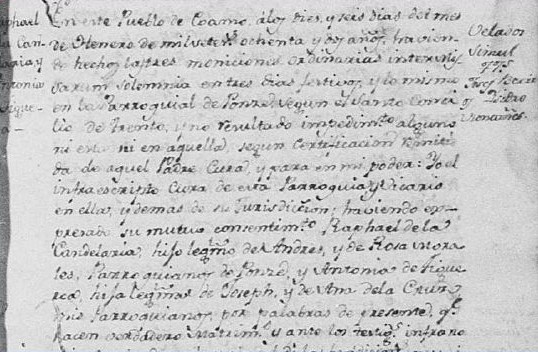 Raphael
de la Can
delaria y
Antonia
Figue-
roa
En este Pueblo de Coamo, á los dies, y seis dias del mes
de Henero de mil setets ochenta y dos años, havien-
do hecho las tres moniciones ordinarias inter Mis-
sarum solemnia en tres dias festivos, y lo mismo
en la Parroquial de Ponze segun el Santo Conci-
lio de Trento, y no resultado impedimto alguno
ni en esta ni en aquella, segun certificacion remiti-
da de aquel Padre Cura, y para en mi poder: Yo el
infraescripto Cura de esta Parroquia, y Vicario
en ella, y demas de su Jurisdiccion; haviendo ex-
presado su mutuo consentimto Raphael de la
Candelaria, hijo legmo de Andres, y de Rosa Mora-
les, Parroquianos de Ponze, y Antonia de Figue-
roa, hija legma de Joseph, y de Ana de la Cruz,
mis Parroquianos, por palabras de presente, qe
hacen verdadero Matrimo y ante los testigs infrano
Velados
Simul
Josef
y Pedro